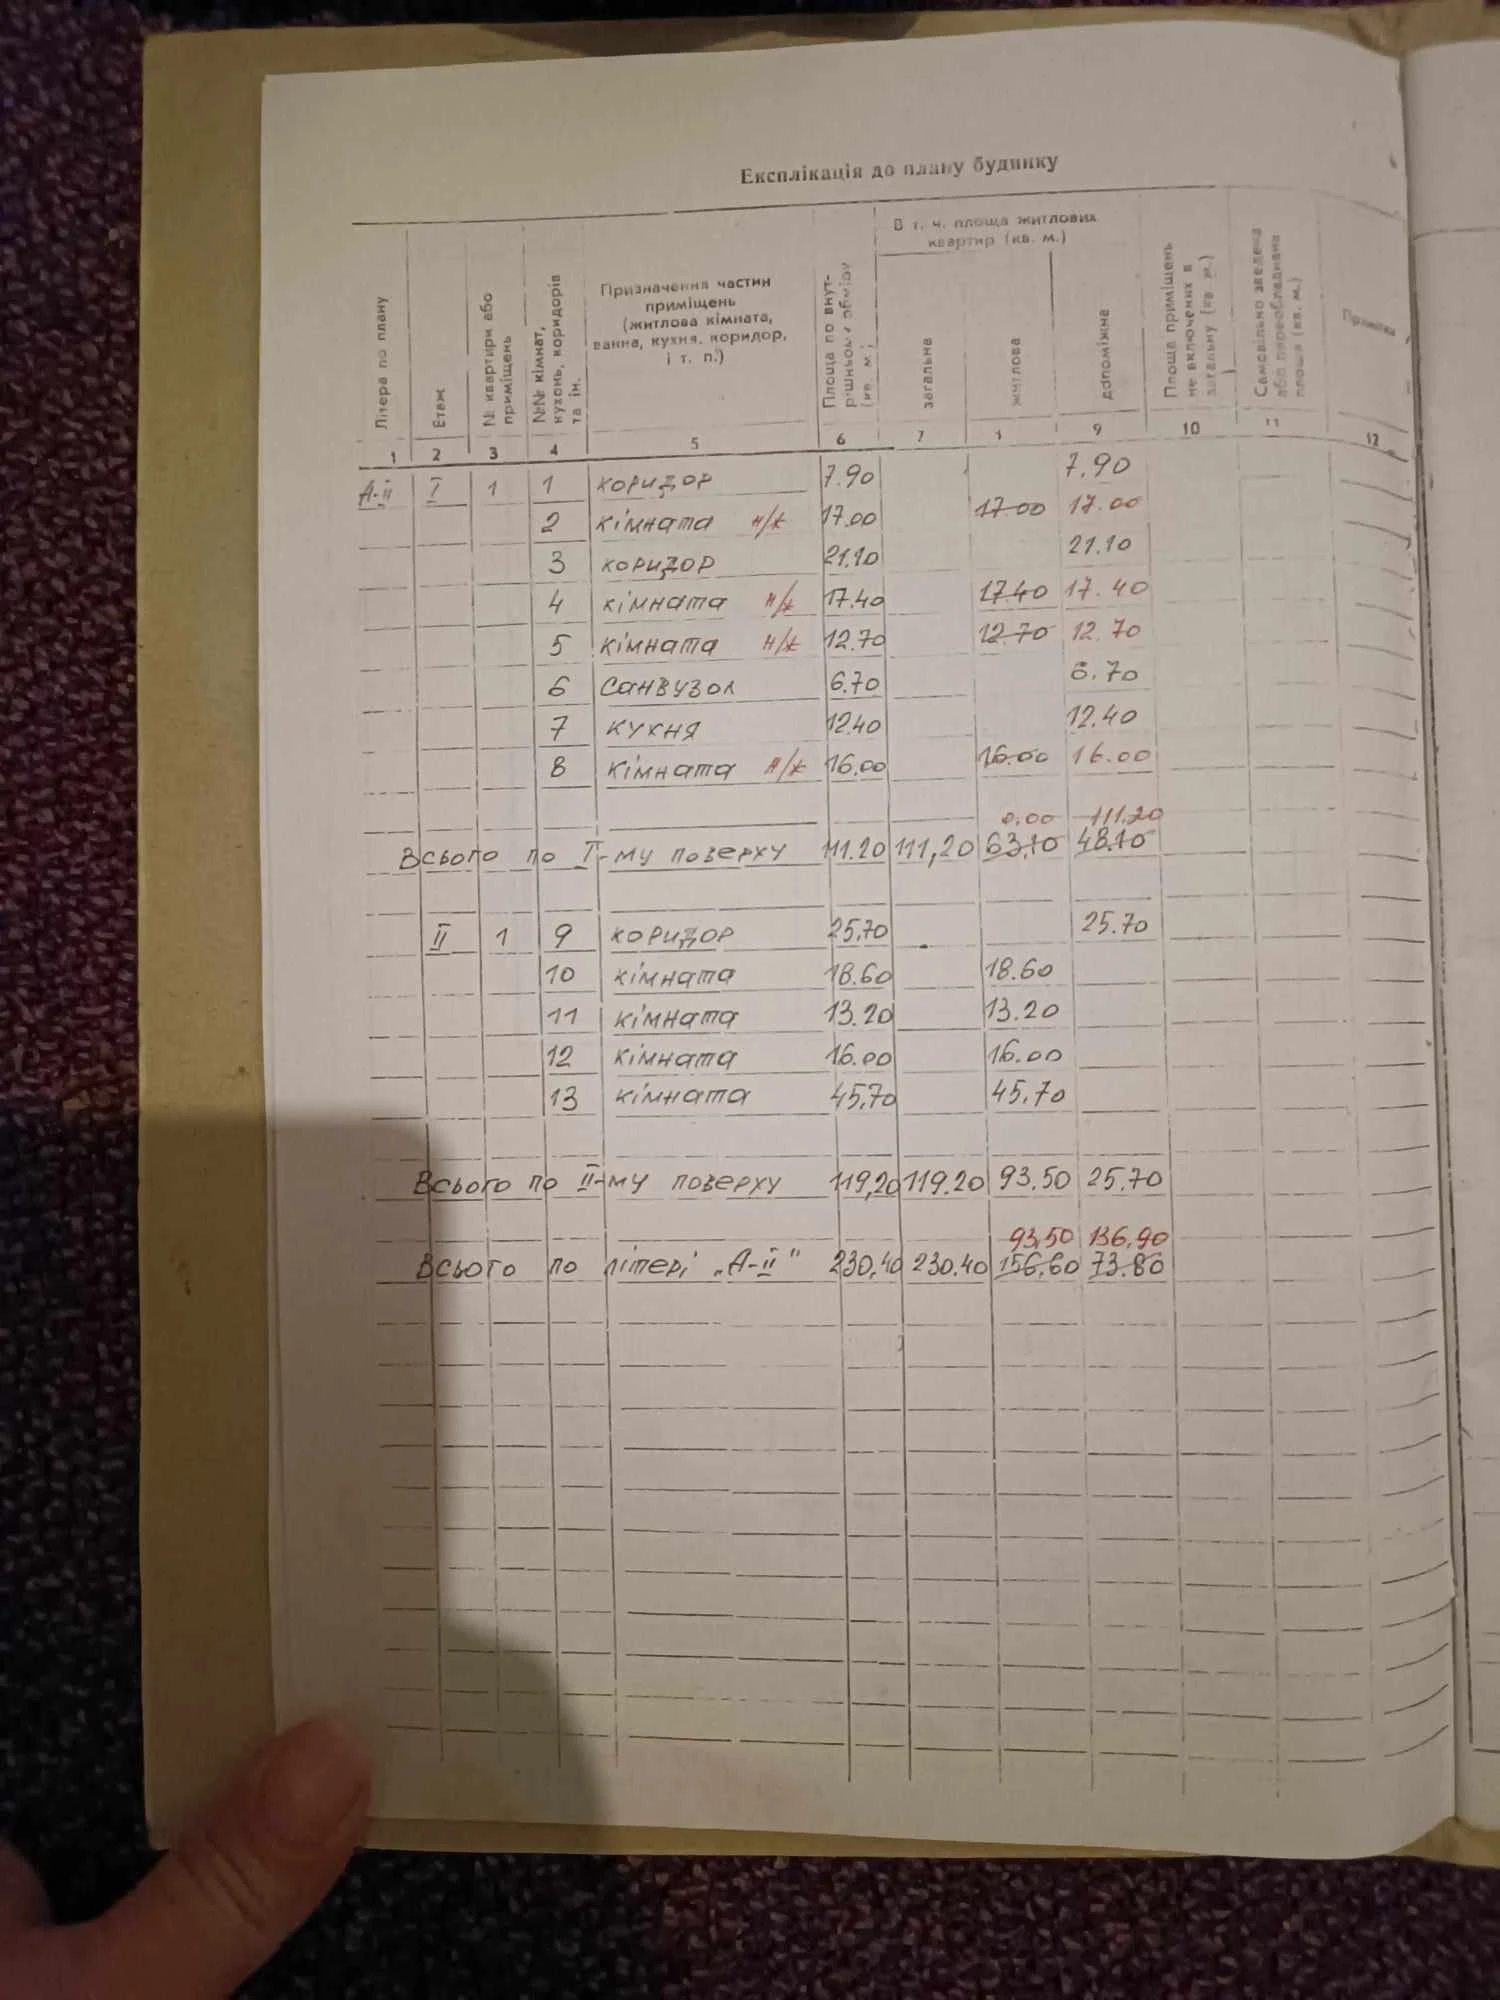 Експлікація до плану будинку
Літера по плану
Етаж
№ квартири або приміщень
№№ кімнат, кухонь, коридорів та ін.
Призначення частин приміщень (житлова кімната, ванна, кухня, коридор, і т. п.)
Площа по внутрішньому обміру (кв. м.)
В т. ч. площа житлових квартир (кв. м.)
загальна
житлова
допоміжна
Площа приміщень не включених в загальну (кв. м.)
Самовільно зведена або переобладнана площа (кв. м.)
Примітка
1 2 3 4 5 6 7 9 10 11 12
А-II I 1 1 коридор 7.90 7.90
2 кімната н/ж 17.00 17.00 17.00
3 коридор 21.10 21.10
4 кімната н/ж 17.40 17.40 17.40
5 кімната н/ж 12.70 12.70 12.70
6 санвузол 6.70 6.70
7 кухня 12.40 12.40
8 кімната н/ж 16.00 16.00 16.00
0.00 111.20
Всього по I-му поверху 111.20 111,20 63,10 48.10
II 1 9 коридор 25.70 25.70
10 кімната 18.60 18.60
11 кімната 13.20 13.20
12 кімната 16.00 16.00
13 кімната 45,70 45.70
Всього по II-му поверху 119,20 119.20 93.50 25.70
93,50 136,90
Всього по літері „А-II" 230,40 230.40 156,60 73.80